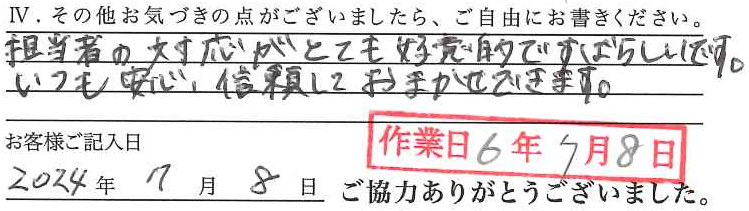 Ⅳ．その他お気づきの点がございましたら、ご自由にお書きください。
担当者の対応がとても好意的ですばらしいです。
いつも安心、信頼しておまかせできます。
お客様ご記入日
作業日6年7月8日
2024年 7月 8日 ご協力ありがとうございました。